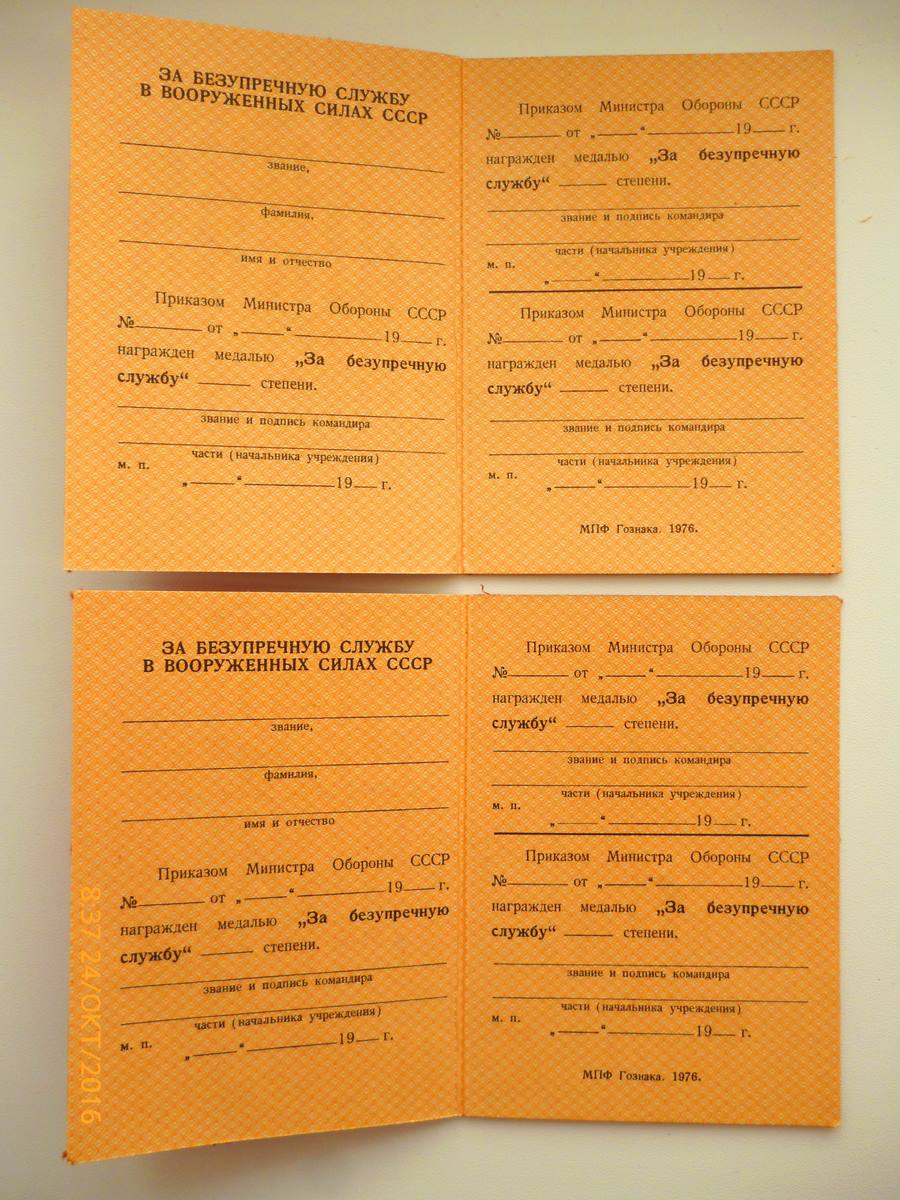 ЗА БЕЗУПРЕЧНУЮ СЛУЖБУ
В ВООРУЖЕННЫХ СИЛАХ СССР
звание,
фамилия,
имя и отчество
Приказом Министра Обороны СССР
№______ от „____“________19__ г.
награжден медалью „За безупречную
службу“ _____ степени.
звание и подпись командира
части (начальника учреждения)
м. п.
„____“________19__ г.
Приказом Министра Обороны СССР
№______ от „____“________19__ г.
награжден медалью „За безупречную
службу“ _____ степени.
звание и подпись командира
части (начальника учреждения)
м. п.
„____“________19__ г.
Приказом Министра Обороны СССР
№______ от „____“________19__ г.
награжден медалью „За безупречную
службу“ _____ степени.
звание и подпись командира
части (начальника учреждения)
м. п.
„____“________19__ г.
МПФ Гознака. 1976.
ЗА БЕЗУПРЕЧНУЮ СЛУЖБУ
В ВООРУЖЕННЫХ СИЛАХ СССР
звание,
фамилия,
имя и отчество
Приказом Министра Обороны СССР
№______ от „____“________19__ г.
награжден медалью „За безупречную
службу“ _____ степени.
звание и подпись командира
части (начальника учреждения)
м. п.
„____“________19__ г.
Приказом Министра Обороны СССР
№______ от „____“________19__ г.
награжден медалью „За безупречную
службу“ _____ степени.
звание и подпись командира
части (начальника учреждения)
м. п.
„____“________19__ г.
Приказом Министра Обороны СССР
№______ от „____“________19__ г.
награжден медалью „За безупречную
службу“ _____ степени.
звание и подпись командира
части (начальника учреждения)
м. п.
„____“________19__ г.
МПФ Гознака. 1976.
8:37 24/ОКТ/2016